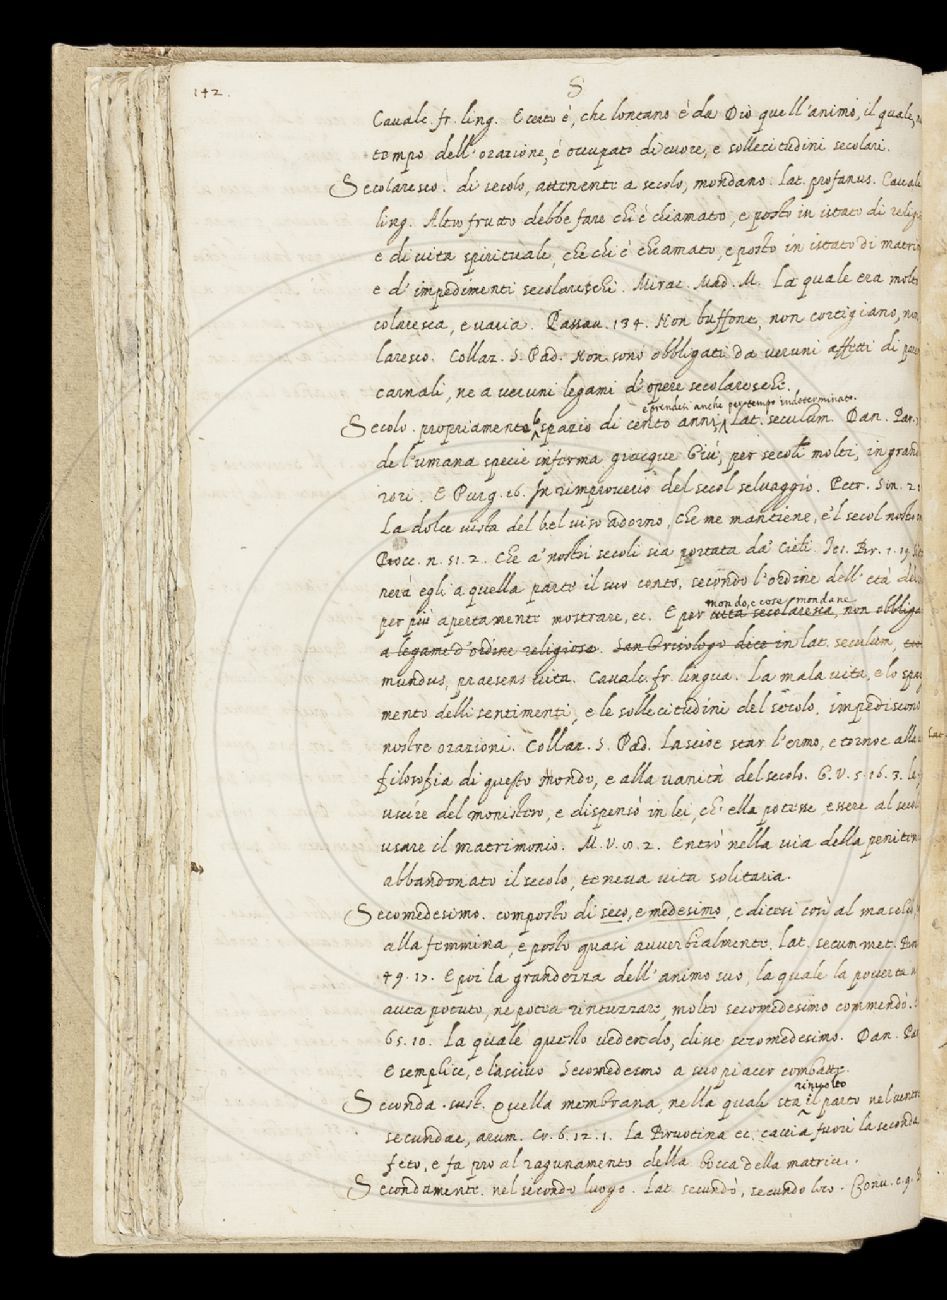 142.
S
Caualc. fr. ling. E certo è, che lontano è da Dio quell'animo, il quale,
tempo dell'orazione, è occupato di cuore, e sollecitudini secolari.
Secolaresco. di secolo, attenente a secolo, mondano. Lat. profanus. Caualc
ling. Altro frutto debbe fare chi è chiamato, e posto in istato di relig
e di uita spirituale, che chi è chiamato, e posto in istato di matri
e d'impedimenti secolareschi. Mirac. Mad. M. La quale era molto
colaresca, e uaria. Passau. 134. Non buffone, non cortigiano, non
laresco. Collaz. S. Pad. Non sono obbligati da ueruni affetti di
carnali, ne a ueruni legami d'opere secolaresche.
e prendesi anche per tempo indeterminato.
Secolo. propriamente spazio di cento anni, Lat. seculum. Dan. Par.
de l'umana specie inferma giacque Giù, per secoli molti, in grand
rori. E Purg. 16. In rimprouerio del secol seluaggio. Petr. Son. 2
La dolce uista del bel uiso adorno, Che me mantiene, e'l secol nostro
Bocc. n. 51. 2. Che a' nostri secoli sia portata da' Cieli. Tes. Br. 1. 19
nerà egli a quella parte il suo conto, secondo l'ordine dell'età del
per più apertamente mostrare, ec. E per uita secolaresca, non obbliga
mondo, e cose mondane
a legame d'ordine religioso. San Grisologo dice in lat. seculum,
mundus, praesens uita. Caualc. fr. lingua. La mala uita, e lo sparg
mento delli sentimenti, e le sollecitudini del secolo, impediscono
nostre orazioni. Collaz. S. Pad. Lascioe star l'ermo, e tornoe alla
filosofia di questo mondo, e alla uanità del secolo. G. V. 5. 16. 3.
uscire del monistro, e dispensò in lei, ch'ella potesse essere al seco
usare il matrimonio. M. V. 8. 2. Entrò nella uia della peniten
abbandonato il secolo, teneua uita solitaria.
Secomedesimo. composto di seco, e medesimo, e dicesi così al mascolo,
alla femmina, e posto quasi auuerbialmente. Lat. secum-met.
49. 17. E poi la grandezza dell'animo suo, la quale la pouertà
auea potuto, ne potea rintuzzare, molto secomedesimo commendò.
65. 10. La quale questo uedendo, disse secomedesimo. Dan.
E semplice, e lasciuo Secomedesmo a suo piacer combatte.
rinuolto
Seconda. sust. Quella membrana, nella quale sta il parto nel uentre
secundae, arum. Cr. 6. 12. 1. La Bruotina ec. caccia fuori la seconda
feto, e fa pro al ragunamento della bocca della matrice.
Secondamente. nel secondo luogo. Lat. secundò, secundo loco. Conu.